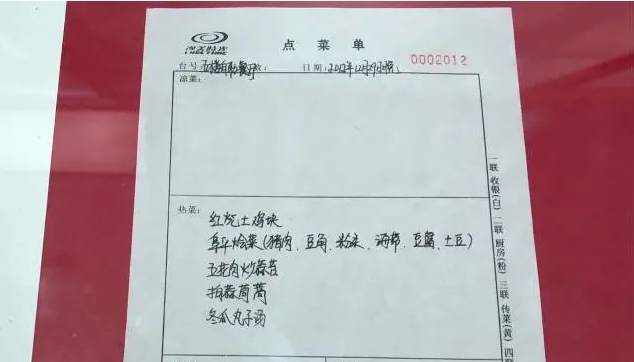 点菜单
台号：五楼自助餐厅 数： 日期：2012年12月29日晚
0002012
凉菜：
热菜：
红烧土鸡块
阜平烩菜（猪肉、豆角、粉条、海带、豆腐、土豆）
五花肉炒蒜苔
拍蒜茼蒿
冬瓜丸子汤
一联 收银(白) 二联 厨房(粉) 三联 传菜(黄) 四联